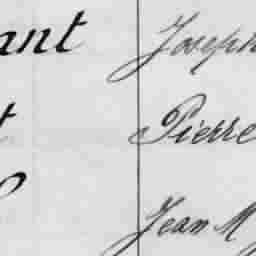 ant Joseph
t Pierre
Jean M